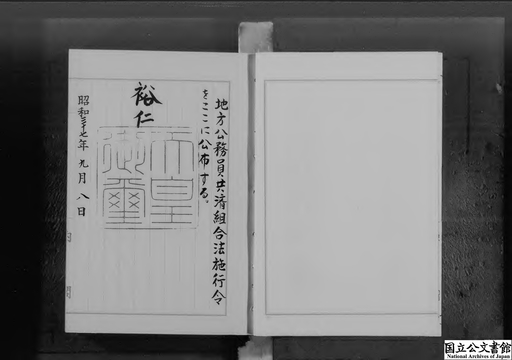 地方公務員共済組合法施行令
をここに公布する。
裕仁
天皇御璽
昭和三十七年九月八日
国立公文書館
National Archives of Japan